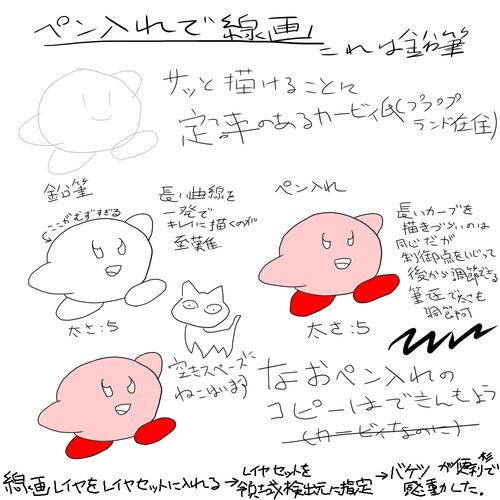 ペン入れで線画
これは鉛筆
サッと描けることに
定評のあるカービィ氏(ププププ
ランド在住)
鉛筆
ここがむずすぎる
長い曲線を
一発で
キレイに描くのが
至難
太さ:5
ペン入れ
長いカーブを
描きづらいのは
同じだが
制御点をいじって
後から調節できる
筆圧でさも
調節可
太さ:5
空きスペースに
ねこはいます
なおペン入れの
コピーはできんもよう
(カービィなのに)
線画レイヤをレイヤセットに入れる→レイヤセットを
領域検出元に指定→バケツが便利で
感動した。